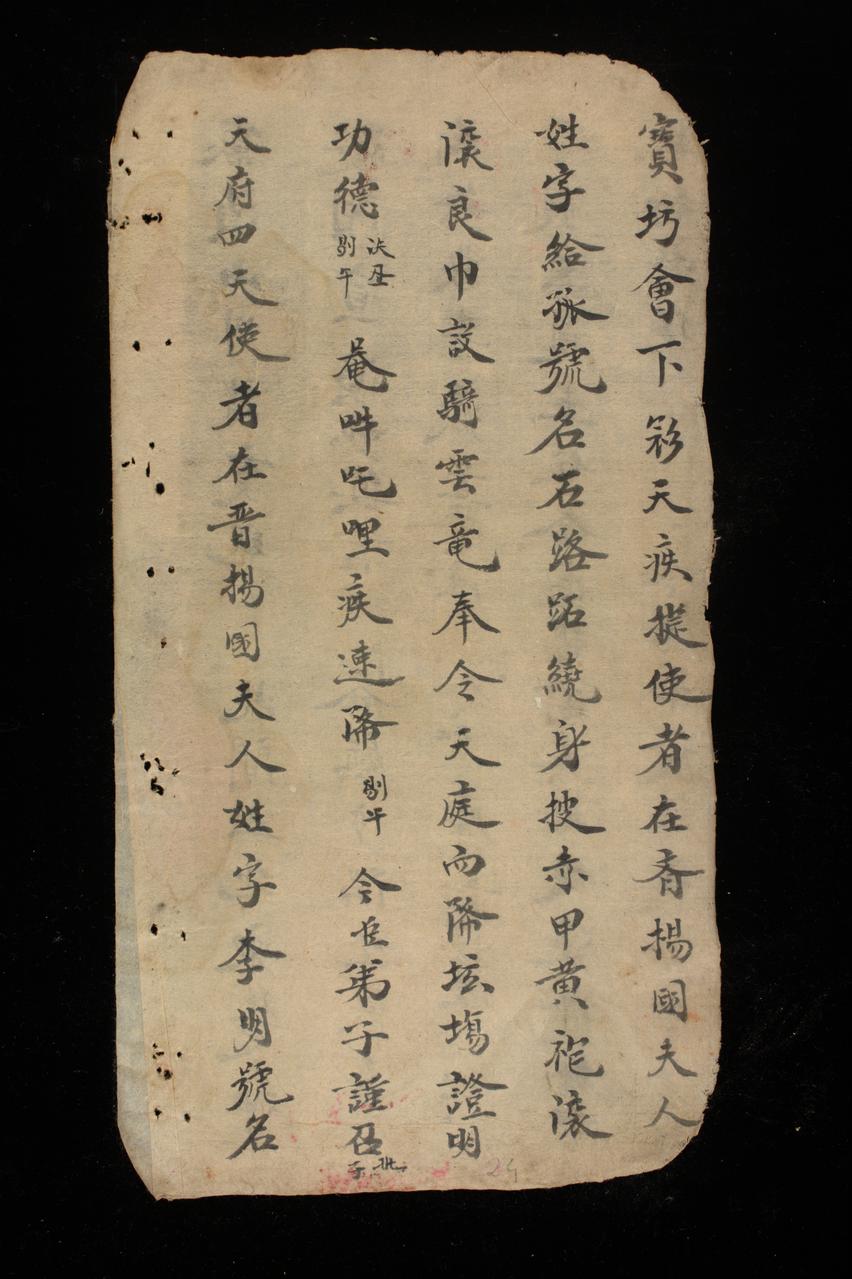 寳坊會下彩天疾捉使者在晋揚國夫人
姓字給孫號名石路跖繞身披赤甲黄袍滚
滚良巾設騎雲竜奉令天庭而降坛塲證明
功德 决召 剔午 奄吽吒哩疾速降 剔午 今臣弟子謹召
天府四天使者在晋揚國夫人姓字李明號名
24